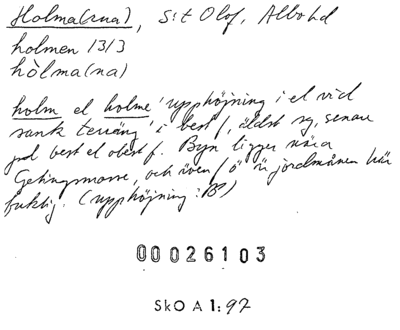 Holma(rna), S:t Olof, Albo hd
holmen 1313
hòlma(na)
holm el holme 'upphöjning i el vid
sank terräng' i best f, äldst sg, senare
pl best el obest f. Byn ligger nära
Getingmosse, och även f ö är jordmånen här
fuktig. (upphöjning: B)
00026103
SkO A 1:97